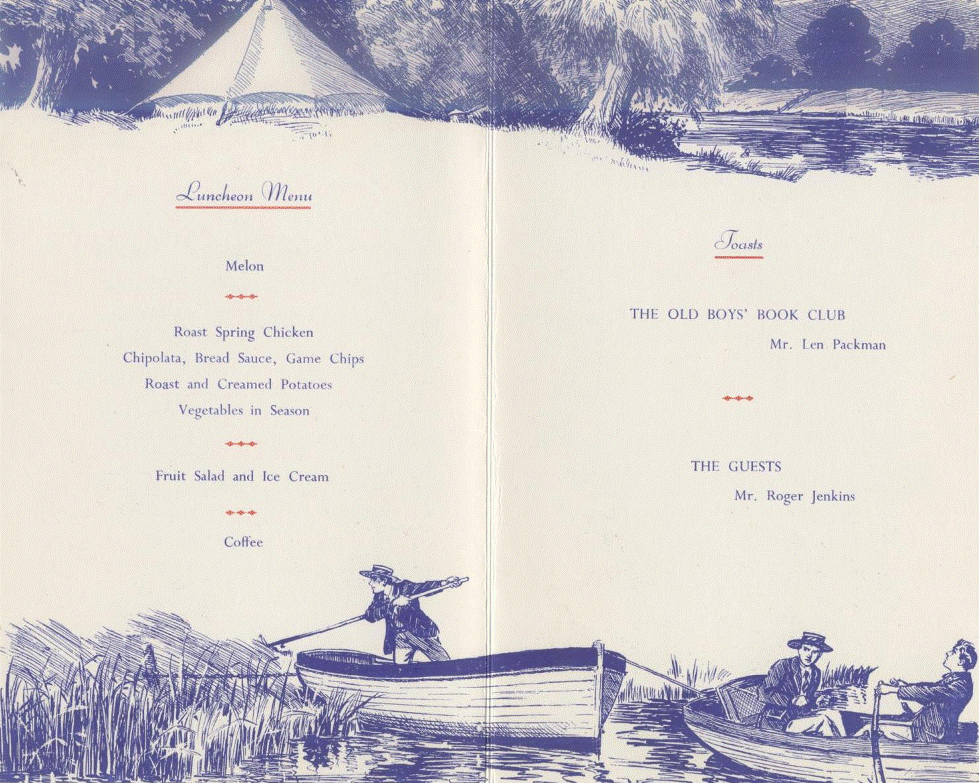 Luncheon Menu
Melon
Roast Spring Chicken
Chipolata, Bread Sauce, Game Chips
Roast and Creamed Potatoes
Vegetables in Season
Fruit Salad and Ice Cream
Coffee
Toasts
THE OLD BOYS' BOOK CLUB
Mr. Len Packman
THE GUESTS
Mr. Roger Jenkins